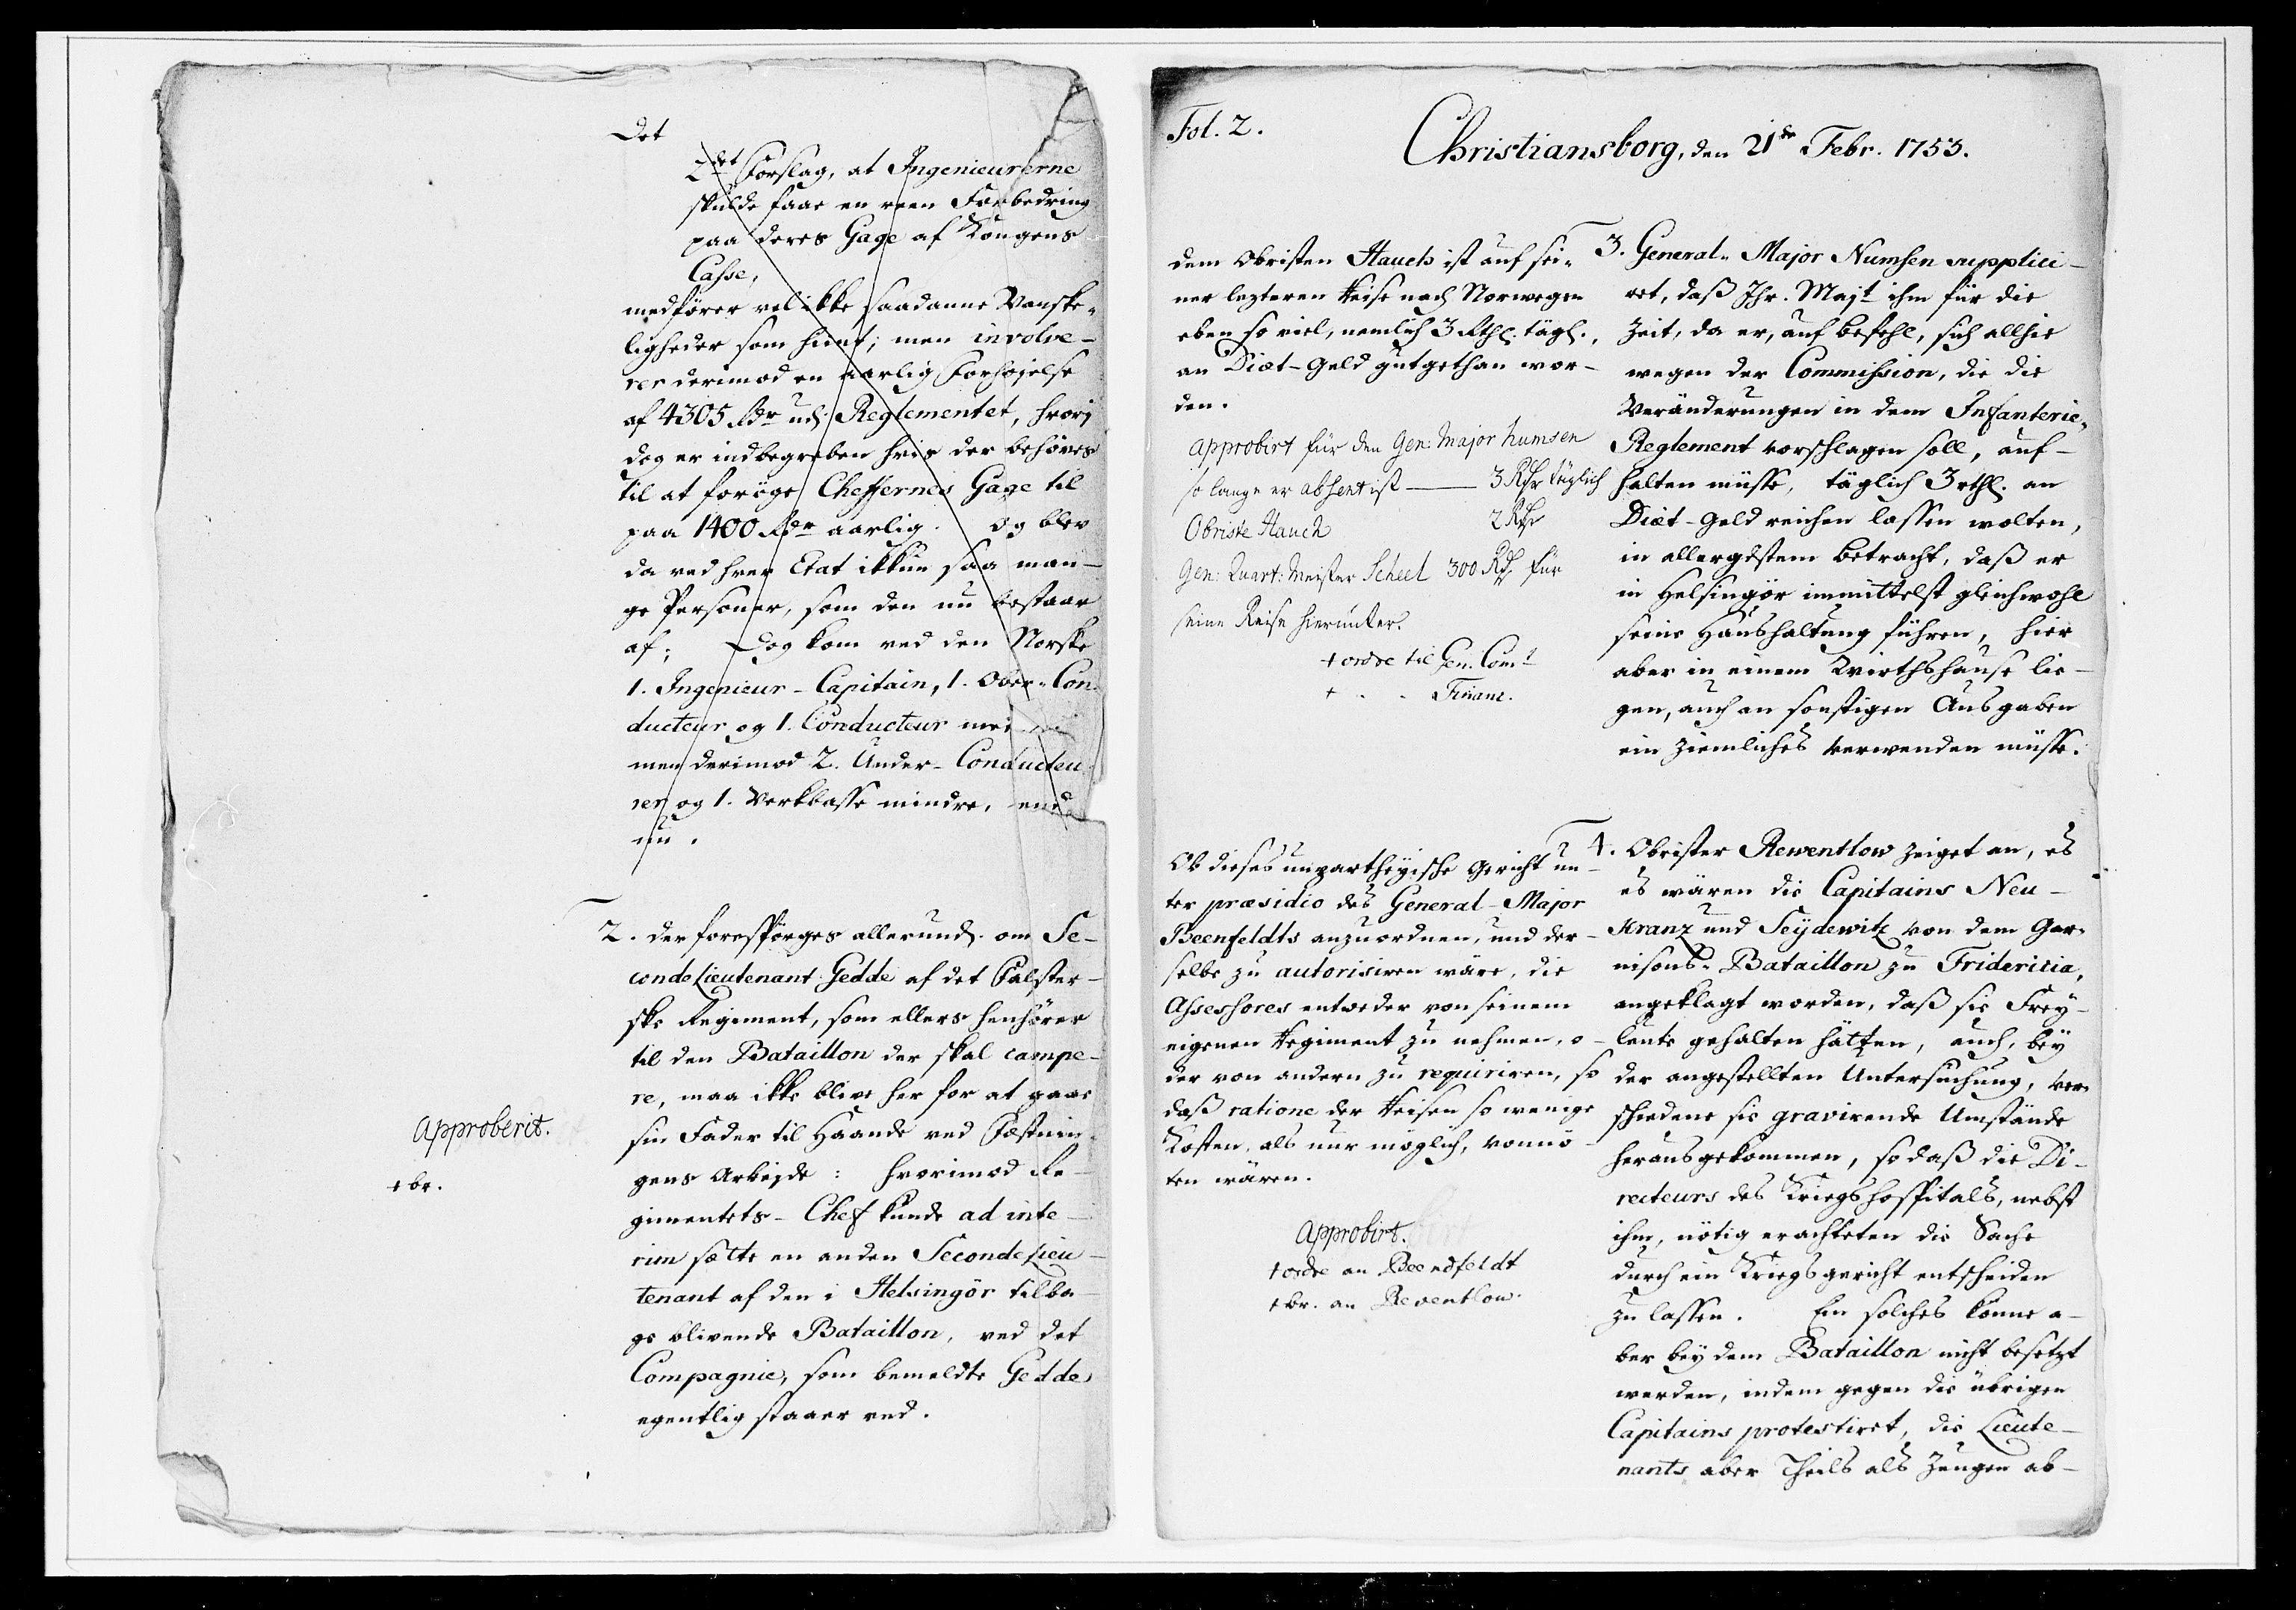 Det
2det Forslag, at Ingenieurerne
skulde faae en reen Forbedring
paa deres Gage af Kongens
Casse,
medfører vel ikke saadanne Vanske-
ligheder som hiint; men involve-
rer derimod en aarlig Forhøjelse
af 4305 Rdr udj Reglementet, hvorj
dog er indbegreben hvis der behøves
til at forøge Cheffernes Gage til
paa 1400 Rdr aarlig. Og blev
da ved hver Etat ikkun saa man-
ge Personer, som den nu bestaar
af; Dog kom ved den Norske
1. Ingenieur-Capitain, 1. Ober-Con-
ducteur og 1. Conducteur
men derimod 2. Under-Conducteu-
rer og 1. Verkbasse mindre, end
nu.
2. der forespørges allerund. om Se-
conde Lieutenant Gedde af det Falster-
ske Regiment, som ellers henhører
til den Bataillon der skal campe-
re, maa ikke blive her for at gaae
sin Fader til Haande ved Fæstnin-
gens Arbejde: hvorimod Re-
giments-Chef kunde ad inte-
rim sætte en anden Seconde Lieu-
tenant af den i Helsingør tilba-
ge blivende Bataillon, ved det
Compagnie, som bemeldte Gedde
egentlig staaer ved.
Approberit.
+ br.
Fol. 2.
Christiansborg, den 21de Febr. 1753.
dem Obristen Hauch ist auf sei-
ner lezteren Reise nach Norwegen
eben so viel, nemlich 3 Rthl. tägl.,
an Diæt-Geld gutgethan wor-
den.
Approbirt für den Gen: Major Numsen
so lange er absent ist — 3 Rthr täglich
Obriste Hauch 2 Rthr
Gen: Quart: Meister Scheel 300 Rthr für
seine Reise hierunter.
+ ordre til Gen. Com.
+ - - Finanz.
3. General-Major Numsen supplici-
ret, daß Ihr. Majt ihm für die
Zeit, da er, auf Befehl, sich allhie
wegen der Commission, die die
Veränderungen in dem Infanterie-
Reglement vorschlagen soll, auf-
halten müsse, täglich 3 rthl. an
Diæt-Geld reichen lassen wolten,
in allergdstem Betracht, daß er
in Helsingör immittelst gleichwohl
seine Haushaltung führen, hier
aber in einem Wirthshause lie-
gen, auch an sonstigen Ausgaben
ein ziemliches verwenden müsse.
Ob dieses unpartheyische Gericht un-
ter præsidio des General-Major
Beenfeldts anzuordnen, und der-
selbe zu autorisiren wäre, die
Assessores entweder von seinem
eigenen Regiment zu nehmen, o-
der von andern zu requiriren, so
daß ratione der Reisen so wenige
Kosten, als nur möglich, vonnö-
ten wären.
Approbirt.
+ ordre an Beendfeldt
+ br. an Reventlow.
4. Obrister Rewentlow zeiget an, es
es wären die Capitains Neu-
kranz und Seydewitz von dem Gar-
nisons-Bataillon zu Fridericia,
angeklagt worden, daß sie Frey-
leute gehalten hätten, auch, bey
der angestellten Untersuchung, ver-
schiedene sie gravirende Umstände
herausgekommen, so daß die Di-
recteurs des Kriegshospitals, nebst
ihm, nötig erachteten die Sache
durch ein Kriegsgericht entscheiden
zu lassen. Ein solches könne a-
ber bey dem Bataillon nicht besetzt
werden, indem gegen die übrigen
Capitains protestiret, die Lieute-
nants aber Theils als Zeugen ab-